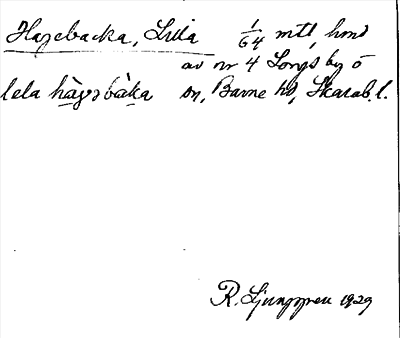 Hagebacka, Lilla 1/64 mtl, hmd
av nr 4 Longs by ö
lela hàgɘbàka sn, Barne hd, Skarab. l.
R. Ljunggren 1929